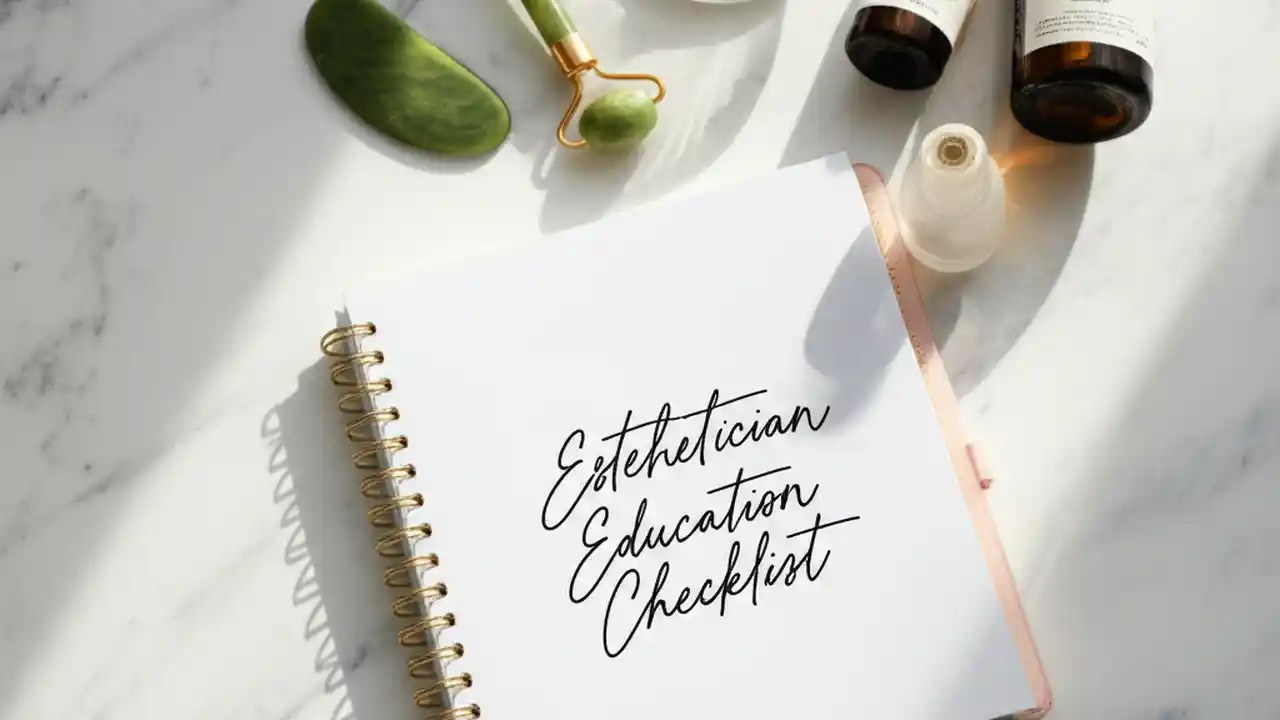 Estehetician
Education
Checklist